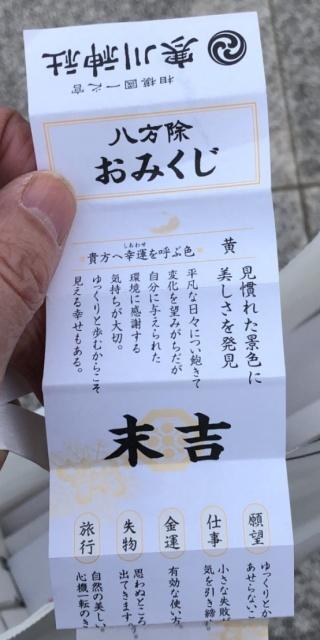 寒川神社
相模國一之宮
八方除
おみくじ
貴方へ幸運を呼ぶ色
しあわせ
黄
見慣れた景色に
美しさを発見
平凡な日々につい飽きて
変化を望みがちだが
自分に与えられた
環境に感謝する
気持ちが大切。
ゆっくりと歩むからこそ
見える幸せもある。
末吉
願望
ゆっくりとか
あせらない
仕事
小さな失敗
気を引き締
金運
有効な使い方
失物
思わぬところ
出てきます
旅行
自然の美し
心機一転のき